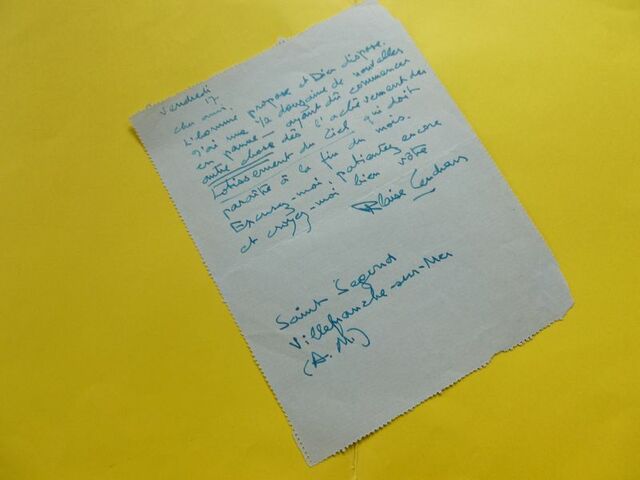 Vendredi
17
cher ami,
L'homme propose et Dieu dispose.
J'ai une 1/2 douzaine de nouvelles
en panne — ayant dû commencer
autre chose dès l'achèvement des
Lotissement du Ciel qui doit
paraître à la fin du mois.
Excusez-moi, patientez encore
et croyez-moi bien vôtre
Blaise Cendrars
Saint Segond
Villefranche-sur-Mer
(A.M.)